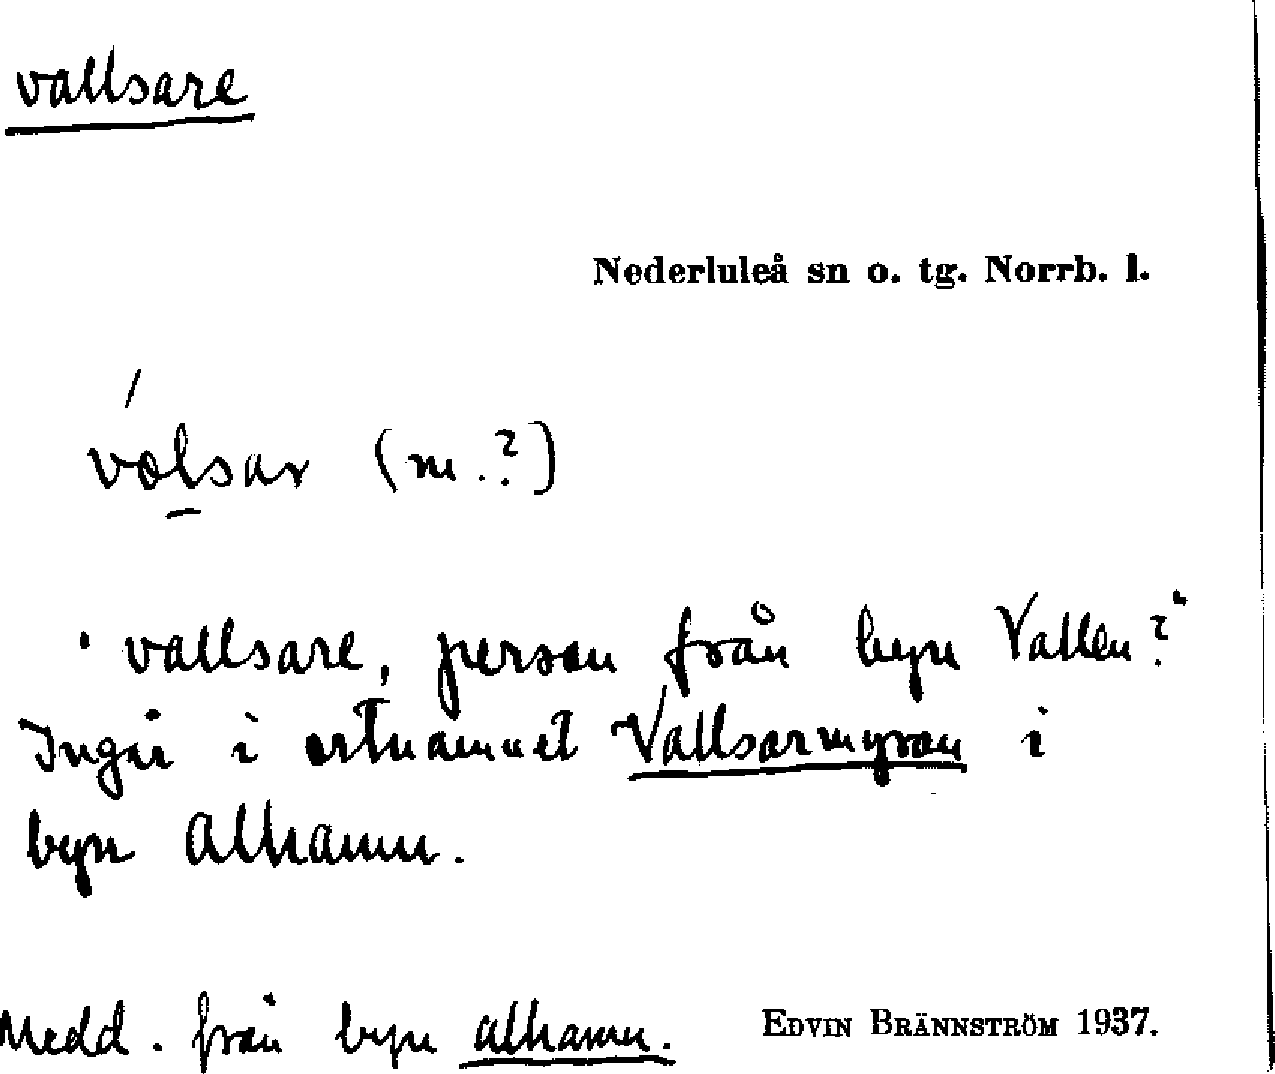 vallsare
Nederluleå sn o. tg. Norrb. l.
vålsar (m.?)
"vallsare, person från byn Vallen?"
Ingår i ortnamnet Vallsarmyran i
byn Alhamn.
Medd. från byn Alhamn. EDVIN BRÄNNSTRÖM 1937.